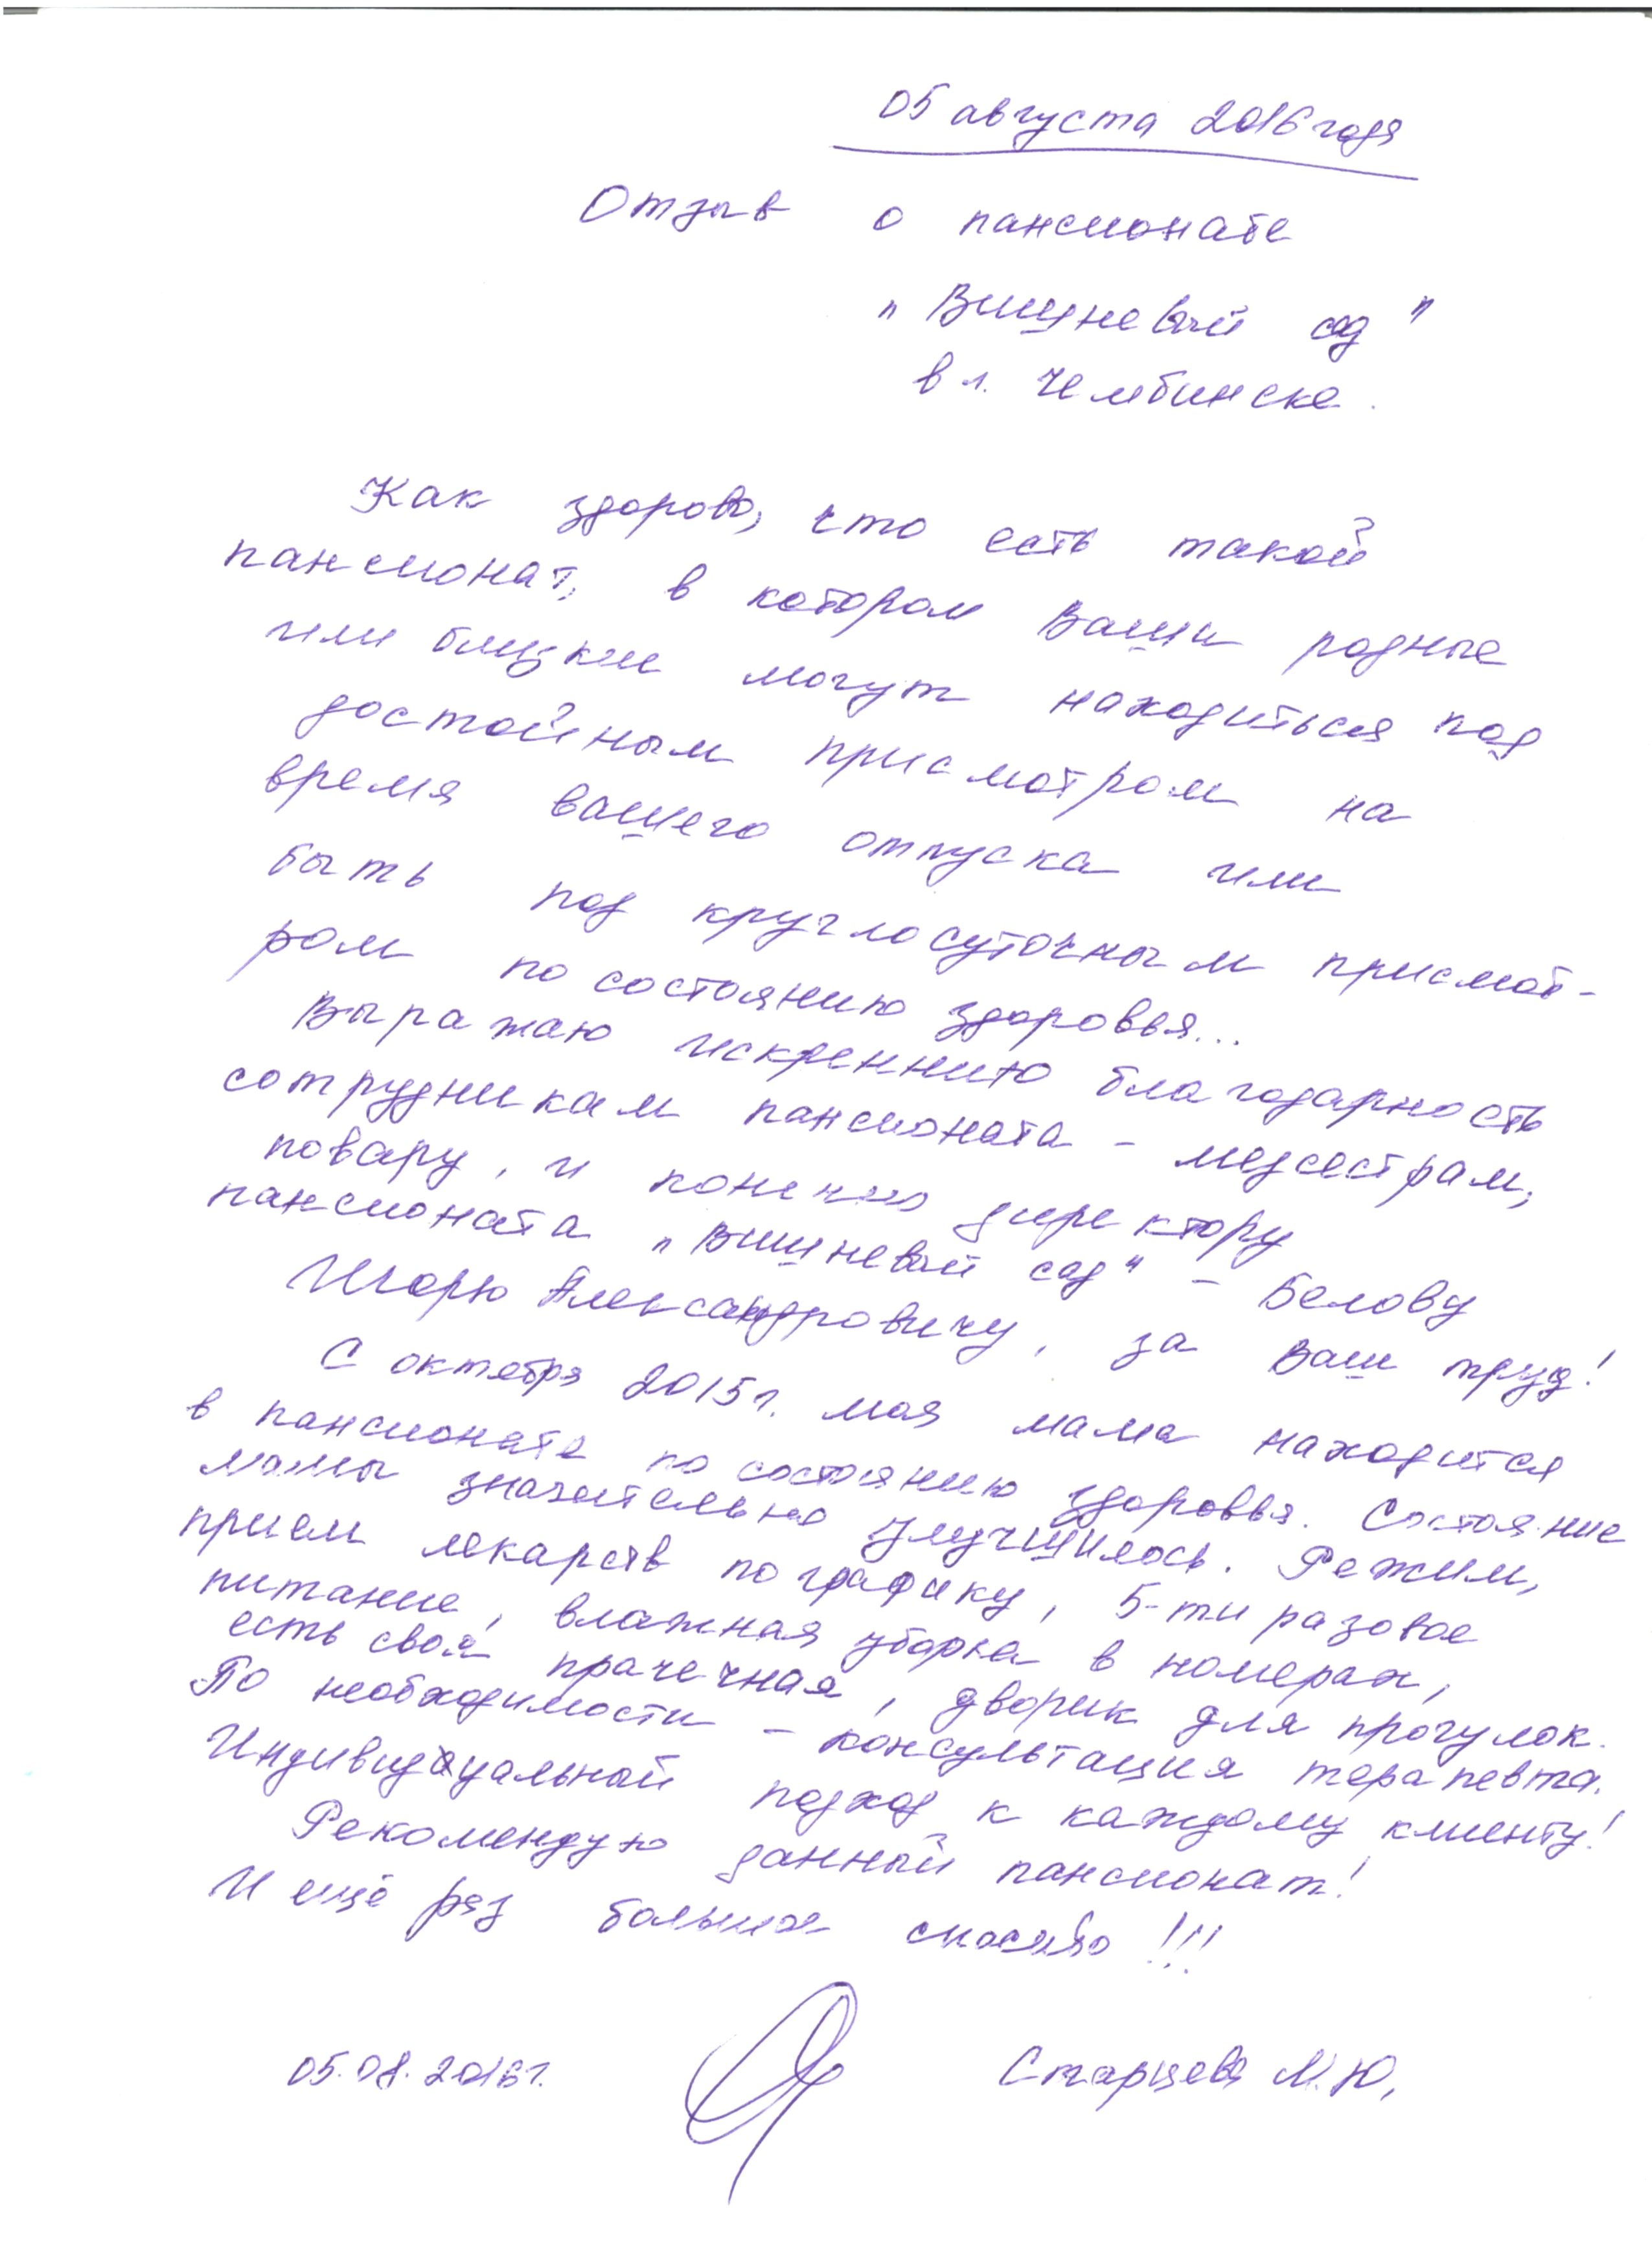 05 августа 2016 года
Отзыв о пансионате
"Вишневый сад"
в г. Челябинске.
Как здорово, что есть такой
пансионат, в котором Ваши родные
или близкие могут находиться под
достойным присмотром на
время вашего отпуска или
быть под круглосуточным присмот-
ром по состоянию здоровья...
Выражаю искреннию благодарность
сотрудникам пансионата - медсестрам,
повару, и конечно директору
пансионата "Вишневый сад" - Белову
Игорю Александровичу, за Ваш труд!
С октября 2015г. моя мама находится
в пансионате по состоянию здоровья. Состояние
мамы значительно улучшилось. Режим,
прием лекарств по графику, 5-ти разовое
питание, влажная уборка в номерах,
есть своя прачечная, дворик для прогулок.
По необходимости - консультация терапевта.
Индивидуальный подход к каждому клиенту!
Рекомендую данный пансионат!
И ещё раз большое спасибо!!!
05.08.2016г. Старцева М.Ю,